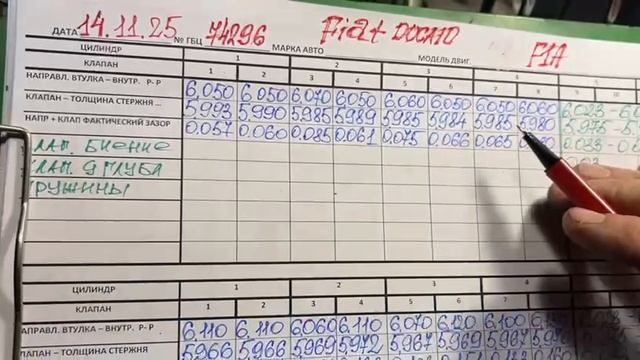 ДАТА 14.11.25 № ГБЦ 74296 МАРКА АВТО Fiat DUCATO МОДЕЛЬ ДВИГ. F1A
ЦИЛИНДР 1 2 3 4
КЛАПАН 1 2 3 4 5 6 7 8 9 10
НАПРАВЛ. ВТУЛКА – ВНУТР. Р-Р 6,050 6,050 6,070 6,050 6,060 6,050 6,050 6,060 6,023
КЛАПАН – ТОЛЩИНА СТЕРЖНЯ 5,993 5,990 5,985 5,989 5,985 5,984 5,985 5,980 5,975
НАПР + КЛАП ФАКТИЧЕСКИЙ ЗАЗОР 0,057 0,060 0,085 0,061 0,075 0,066 0,065 0,033
КЛАП. БИЕНИЕ
КЛАП. ГЛУБА
ПРУЖИНЫ
ЦИЛИНДР 1 2 3 4
КЛАПАН 1 2 3 4 5 6 7 8
НАПРАВЛ. ВТУЛКА – ВНУТР. Р-Р 6,110 6,110 6,060 6,110 6,070 6,120 6,100
КЛАПАН – ТОЛЩИНА СТЕРЖНЯ 5,966 5,966 5,969 5,972 5,967 5,969 5,967